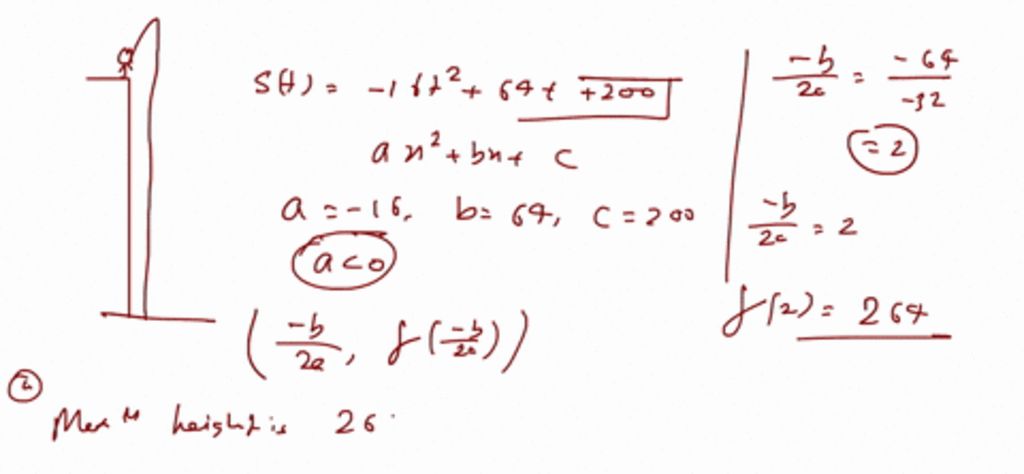 S(t) = -16t² + 64t +200
ax² + bx + c
a = -16, b = 64, c = 200
a < 0
(-b/2a, f(-b/2a))
-b/2a = -64/-32
= 2
-b/2a = 2
f(2) = 264
②
Max m height is 26